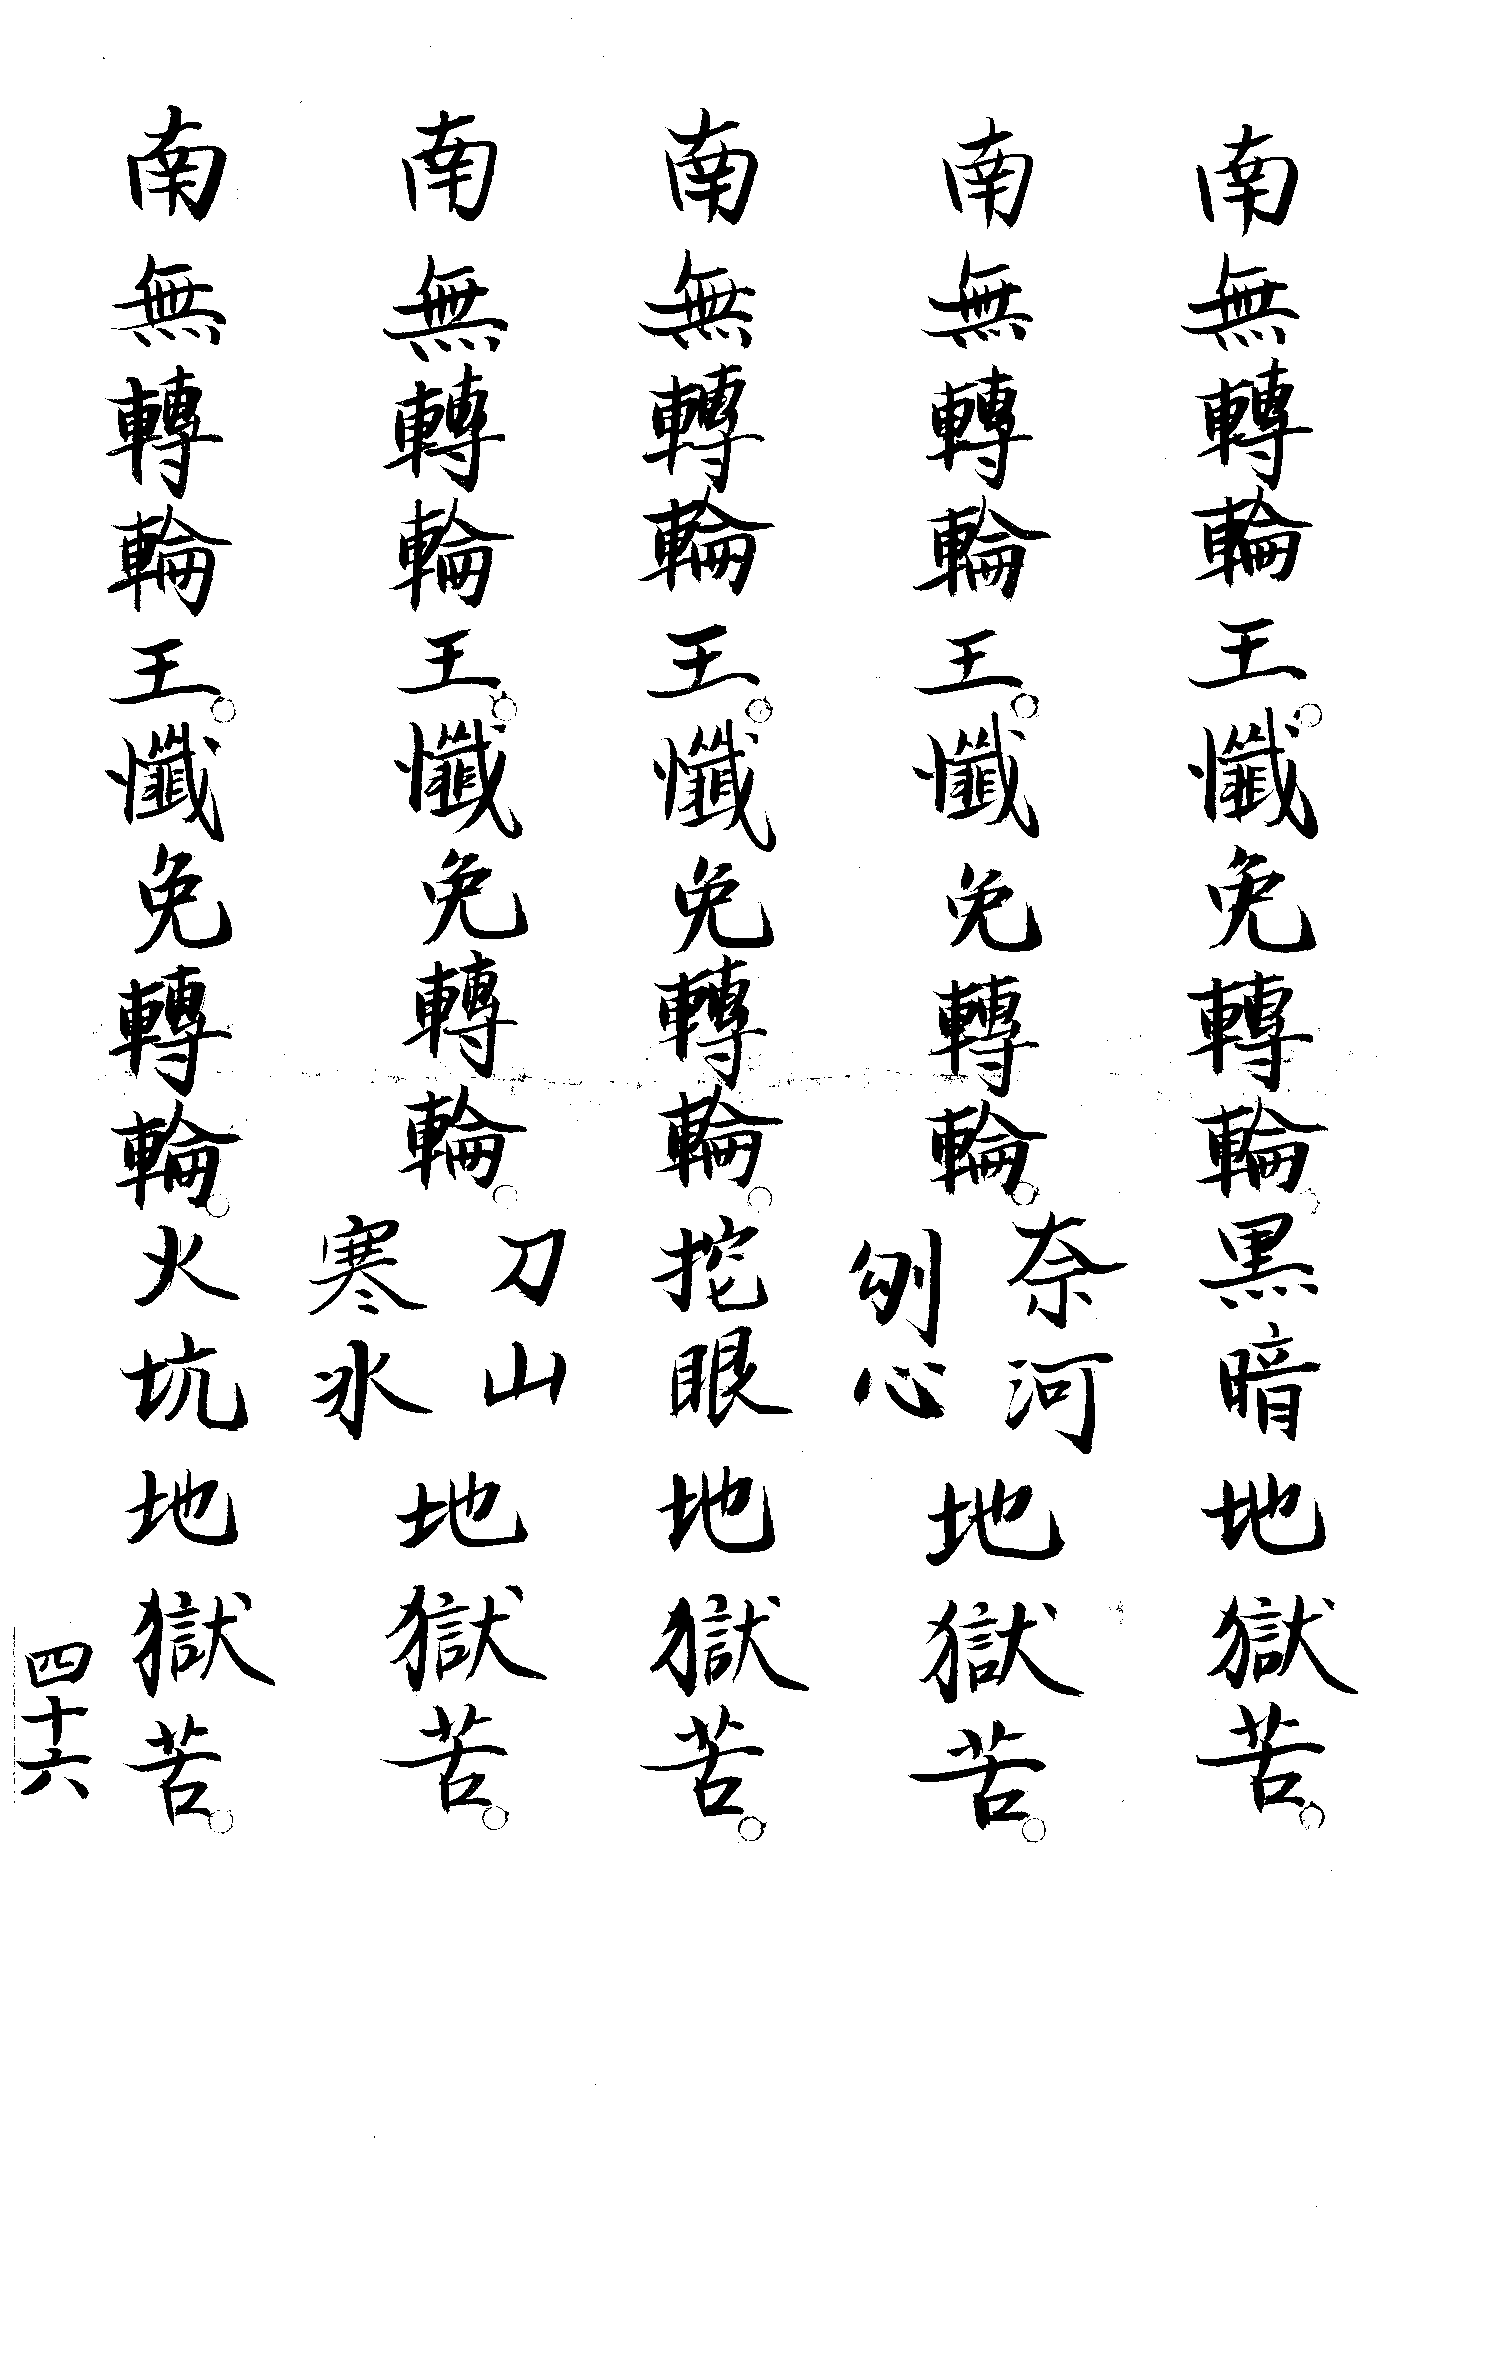 南無轉輪王。懺免轉輪。黑暗地獄苦。
南無轉輪王。懺免轉輪。奈河刎心地獄苦。
南無轉輪王。懺免轉輪。挖眼地獄苦。
南無轉輪王。懺免轉輪。刀山寒冰地獄苦。
南無轉輪王。懺免轉輪。火坑地獄苦。
四十六